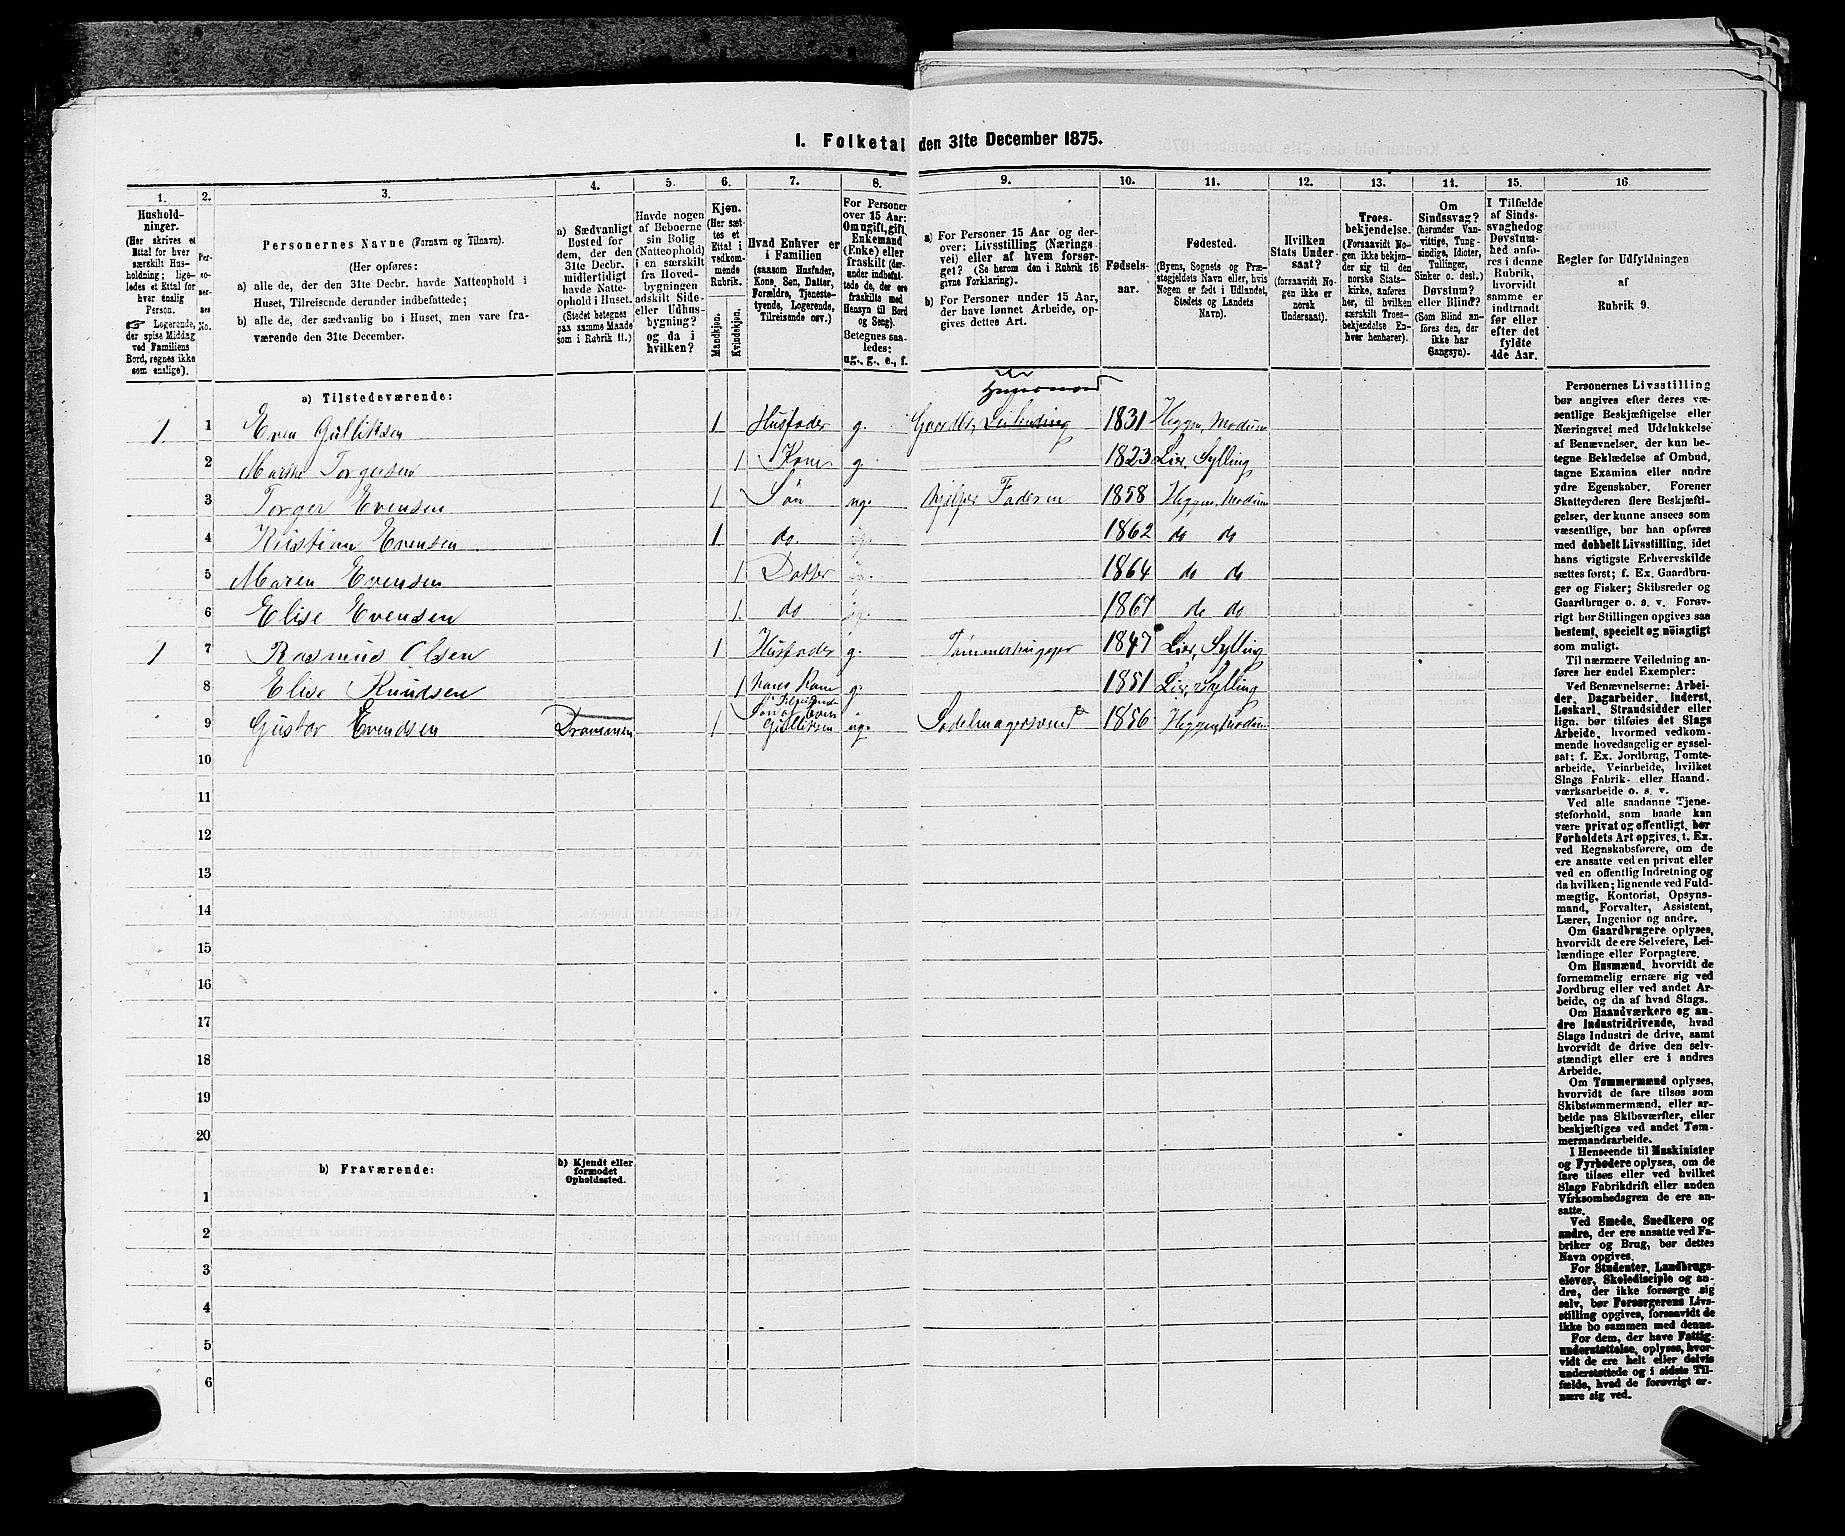 1. Folketal den 31te December 1875.
1.
Hushold-
ninger.
(Her skrives et
Ettal for hver
særskilt Hus-
holdning; lige-
ledes et Ettal for
hver enslig
Person.
☞ Logerende,
der spise Middag
ved Familiens
Bord, regnes ikke
som enslige).
2.
Per-
so-
ner-
nes
No.
3.
Personernes Navne (Fornavn og Tilnavn).
(Her opføres:
a) alle de, der den 31te Decbr. havde Natteophold i
Huset, Tilreisende derunder indbefattede;
b) alle de, der sædvanlig bo i Huset, men vare fra-
værende den 31te December.
4.
a) Sædvanligt
Bosted for
dem, der den
31te Decbr.
midlertidigt
havde Natte-
ophold i Huset.
(Stedet betegnes
paa samme Maade
som i Rubrik 11.)
5.
Havde nogen
af Beboerne
sin Bolig
(Natteophold)
i en særskilt
fra Hoved-
bygningen
adskilt Side-
eller Udhus-
bygning?
og da i
hvilken?
6.
Kjøn.
(Her sæt-
tes et
Ettal i
vedkom-
mende
Rubrik.
Mandkjøn.
Kvindekjøn.
7.
Hvad Enhver er
i Familien
(saasom Husfader,
Kone, Søn, Datter,
Forældre, Tjeneste-
tyende, Logerende,
Tilreisende osv.)
8.
For Personer
over 15 Aar:
Om ugift, gift,
Enkemand
(Enke) eller
fraskilt (der-
under indbefat-
tede de, der ere
fraskilte med
Hensyn til Bord
og Seng).
Betegnes saa-
ledes:
ug., g., e., f.
9.
a) For Personer 15 Aar og der-
over: Livsstilling (Nærings
vei) eller af hvem forsør-
get? (Se herom den i Rubrik 16
givne Forklaring).
b) For Personer under 15 Aar,
der have lønnet Arbeide, op-
gives dettes Art.
10.
Fødsels-
aar.
11.
Fødested.
(Byens, Sognets og Præ-
stegjeldets Navn eller, hvis
Nogen er født i Udlandet,
Stedets og Landets
Navn).
12.
Hvilken
Stats Under-
saat?
(forsaavidt No-
gen ikke er
norsk
Undersaat).
13.
Troes-
bekjendelse.
(Forsaavidt No-
gen ikke bekjen-
der sig til den
norske Stats-
kirke, anføres
her, til hvilken
særskilt Troes-
bekjendelse En-
hver henhører).
14.
Om
Sindssvag?
(herunder Van-
vittige, Tung-
sindige, Idioter,
Tullinger,
Sinker o. desl.)
Døvstum?
eller Blind?
(Som Blind an-
føres den, der
ikke har
Gangsyn).
15.
I Tilfælde
af Sinds-
svaghed og
Døvstum-
hed anfø-
res i denne
Rubrik,
hvorvidt
samme er
indtraadt
før eller
efter det
fyldte
4de Aar.
16
Regler for Udfyldningen
af
Rubrik 9.
a) Tilstedeværende:
Husmand
1 1 Even Gulliksen 1 Husfader g. Gaardbr. Leilending 1831 Higgen, Modum
2 Marthe Torgersen 1 Kone g. 1823 Lier, Sylling
3 Torger Evensen 1 Søn ug. hjælper Faderen 1858 Higgen, Modum
4 Kristian Evensen 1 do. 1862 do do
5 Maren Evensen 1 Datter 1864 do do
6 Elise Evensen 1 do 1867 do do
1 7 Rasmus Olsen 1 Husfader g. Tømmerhugger 1847 Lier, Sylling
8 Elise Knudsen 1 hans Kone g. 1851 Lier, Sylling
9 Gustav Evendsen Drammen 1 Søn af Even
Gulliksen ug. Sadelmagersvend 1856 Higgen, Modum
10
11
12
13
14
15
16
17
18
19
20
b) Fraværende:
b) Kjendt eller
formodet
Opholdssted.
1
2
3
4
5
6
Personernes Livsstilling
bør angives efter deres væ-
sentlige Beskjæftigelse eller
Næringsvei med Udelukkelse
af Benævnelser, der kun be-
tegne Beklædelse af Ombud,
tagne Examina eller andre
ydre Egenskaber. Forener
Skatteyderen flere Beskjæfti-
gelser, der kunne ansees som
væsentlige, bør han opføres
med dobbelt Livsstilling, idet
hans vigtigste Erhvervskilde
sættes først; f. Ex. Gaardbru-
ger og Fisker; Skibsreder og
Gaardbruger o. s. v. Forøv-
rigt bør Stillingen opgives saa
bestemt, specielt og nöiagtigt
som muligt.
Til nærmere Veiledning an-
føres her endel Exempler:
Ved Benævnelserne: Arbei-
der, Dagarbeider, Inderst,
Løskarl, Strandsidder eller
lign. bør tilføies det Slags
Arbeide, hvormed vedkom-
mende hovedsagelig er syssel-
sat; f. Ex. Jordbrug, Tomte-
arbeide, Veiarbeide, hvilket
Slags Fabrik- eller Haand-
værksarbeide o. s. v.
Ved alle saadanne Tjene-
steforhold, som baade kan
være privat og offentligt, bør
Forholdets Art opgives, t. Ex.
ved Regnskabsførere, om de
ere ansatte ved en privat eller
ved en offentlig Indretning og
da hvilken; lignende ved Fuld-
mægtig, Kontorist, Opsyns-
mand, Forvalter, Assistent,
Lærer, Ingeniør og andre.
Om Gaardbrugere oplyses,
hvorvidt de ere Selveiere, Lei-
lændinge eller Forpagtere.
Om Husmænd, hvorvidt de
fornemmelig ernære sig ved
Jordbrug eller ved andet Ar-
beide, og da af hvad Slags.
Om Haandværkere og an-
dre Industridrivende, hvad
Slags Industri de drive, samt
hvorvidt de drive den selv-
stændigt eller ere i andres
Arbeide.
Om Tømmermænd oplyses,
hvorvidt de fare tilsøs som
Skibstømmermænd, eller ar-
beide paa Skibsværfter, eller
beskjæftiges ved andet Tøm-
mermandsarbeide.
I Henseende til Maskinister
og Fyrbødere oplyses, om de
fare tilsøs eller ved hvilket
Slags Fabrikdrift eller anden
Virksomhedsgren de ere an-
satte.
Ved Smede, Snedkere og
andre, der ere ansatte ved Fa-
briker og Brug, bør dettes
Navn opgives.
For Studenter, Landbrugs-
elever, Skoledisciple og an-
dre, der ikke forsørge sig
selv, bør Forsørgerens Livs-
stilling opgives, forsaavidt de
ikke bo sammen med denne.
For dem, der have Fattig-
understøttelse, oplyses, hvor-
vidt de ere helt eller delvis
understøttede og i sidste Til-
fælde, hvad de forøvrigt er-
nære sig ved.